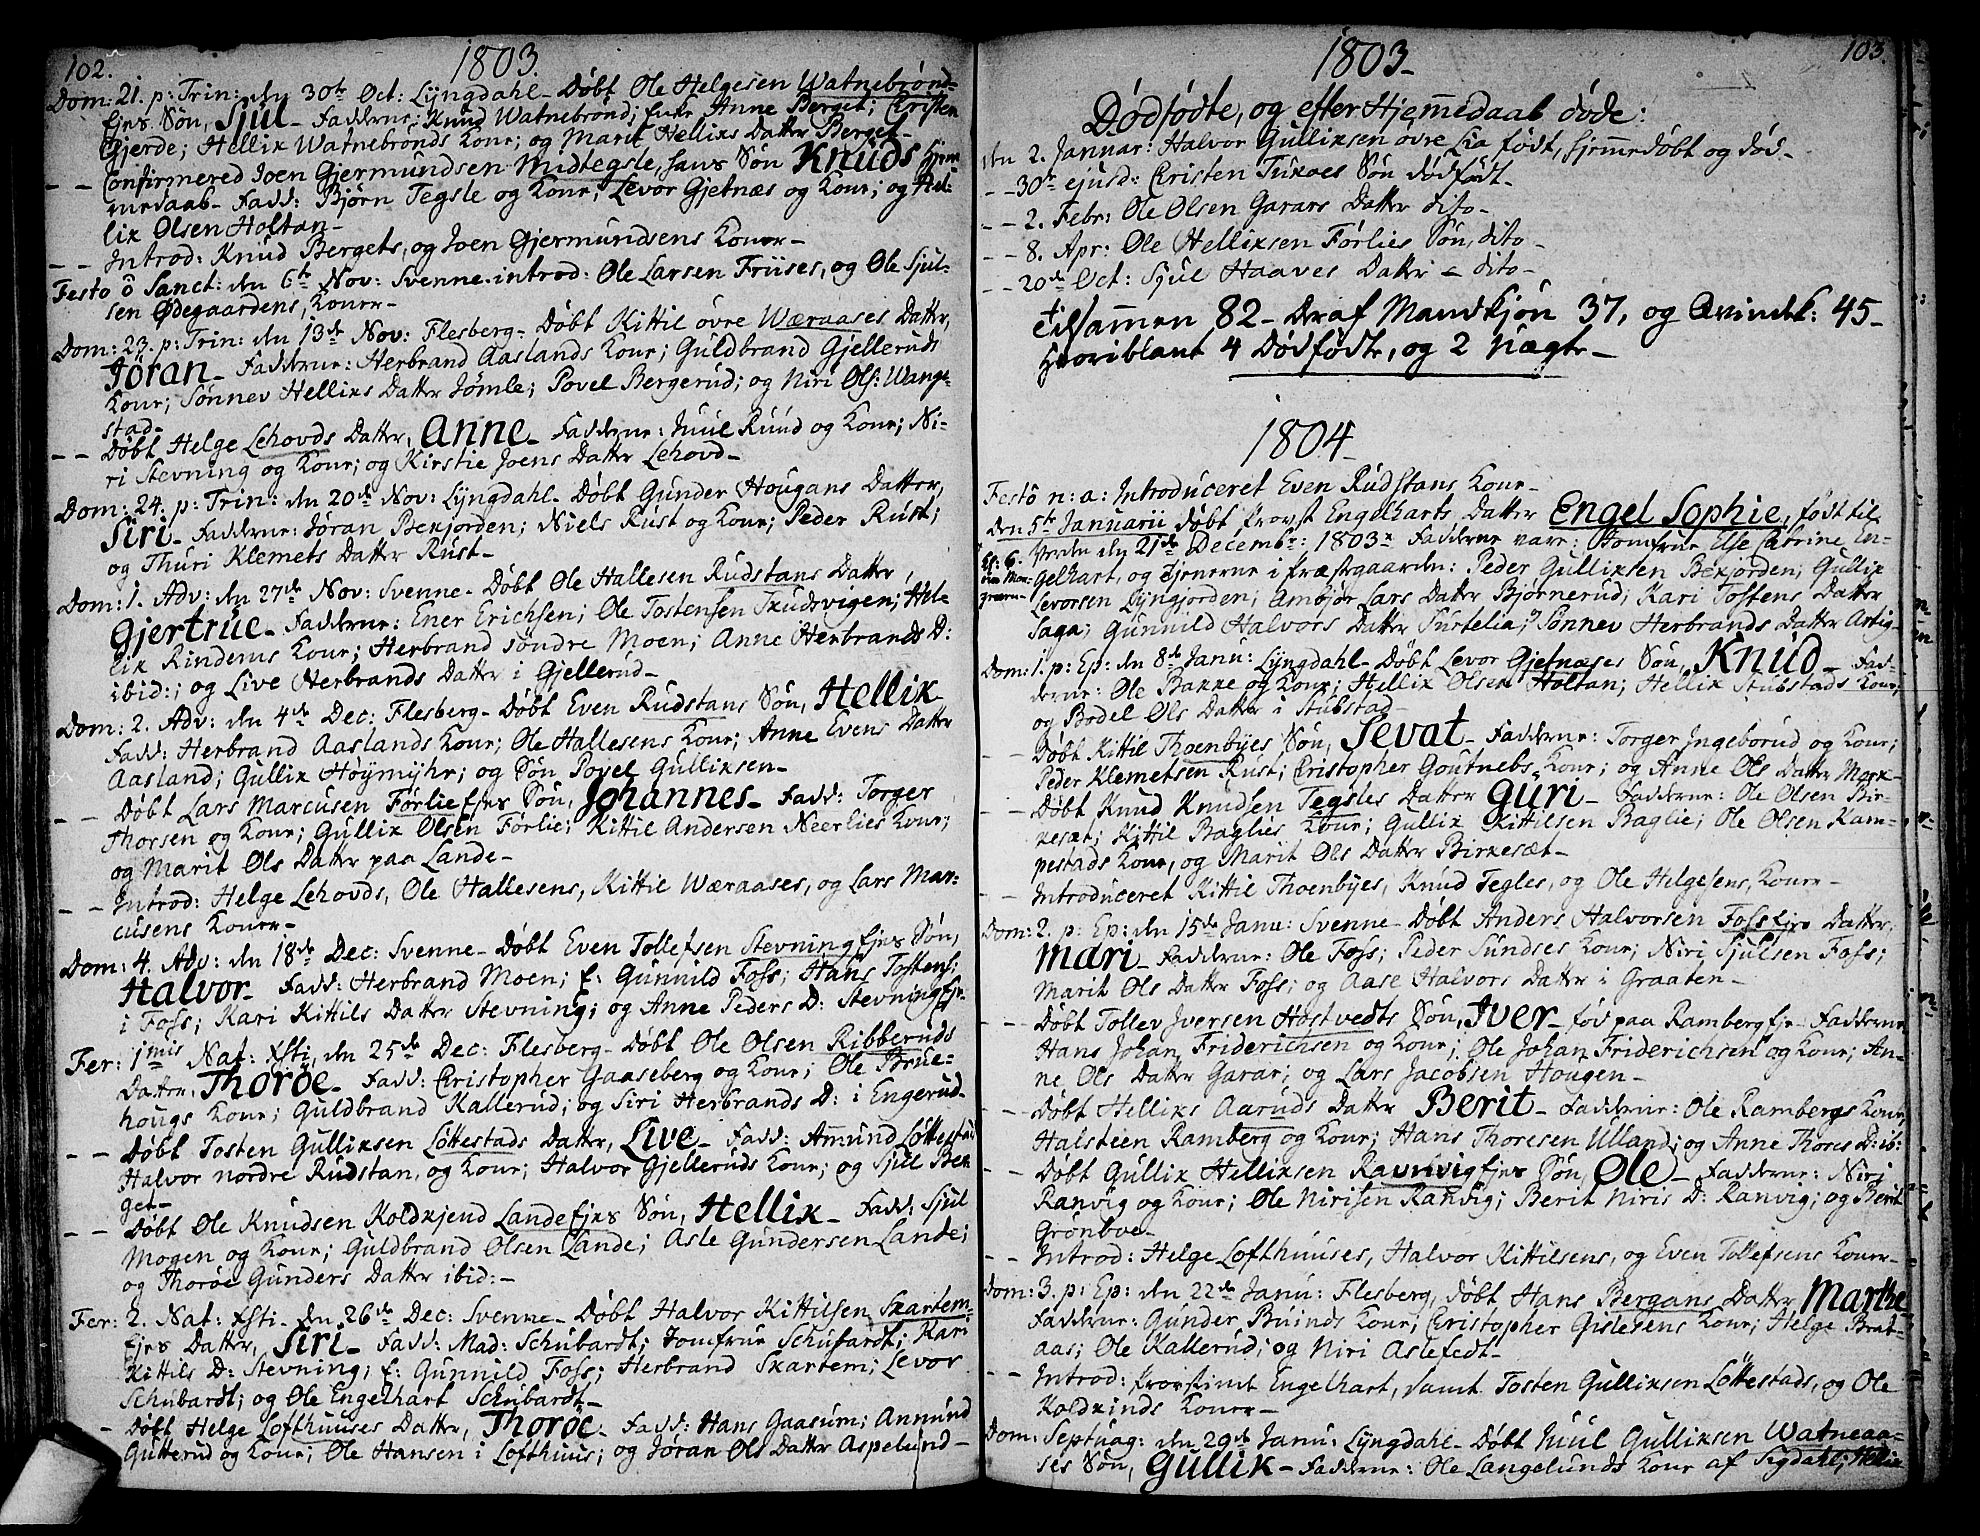 102.
1803.
Dom: 21. p: Trin: den 30te Oct: Lyngdahl- Døbt Ole Helgesen Watnebrønd-
Ejes Søn, Sjul- Fadderne: Knud Watnebrønd; Enke Anne Berget; Cristen
Gjerde; Hellik Watnebrønds Kone; og Marit Helliks Datter Berget-
- - Confirmered Joen Gjermundsen Midtegsle, hans Søn Knuds Hjem-
medaab- Fadd: Bjørn Tegsle og Kone; Levor Gjetnæs og Kone; og Hel-
lik Olsen Holtan-
- - Introd: Knud Bergets, og Joen Gjermundsens Koner-
Festo ō Sanct: den 6te Nov: Svenne. introd: Ole Larsen Friises, og Ole Sjul-
sen Ødegaardens, Koner-
Dom: 23. p: Trin: den 13de Nov: Flesberg- Døbt Kittil øvre Wæraases Datter,
Jöran- Fadderne: Herbrand Aaslands Kone; Guldbrand Gjelleruds
Kone; Sønnev Helliks Datter Jømle; Povel Bergerud; og Niri Ols: Wange-
stad-
- - Døbt Helge Lehovds Datter, Anne- Fadderne: Juul Ruud og Kone; Ni-
ri Stevning og Kone; og Kirstie Joens Datter Lehovd-
Dom: 24. p: Trin: den 20de Nov: Lyngdahl- Døbt Gunder Hougans Datter,
Siri- Fadderne: Jöran Bekjorden; Niels Rust og Kone; Peder Rust;
og Thuri Klemets Datter Rust-
Dom: 1. Adv: den 27de Nov: Svenne- Døbt Ole Hallesen Rudstans Datter,
Gjertrue- Fadderne: Ener Erichsen; Ole Tostensen Skudsvigen; Hel-
lik Rinderns Kone; Herbrand søndre Moen; Anne Herbrands D:
ibid:; og Live Herbrands Datter i Gjellerud-
Dom: 2. Adv: den 4de Dec: Flesberg- Døbt Even Rudstans Søn, Hellik-
Fadd: Herbrand Aaslands Kone; Ole Hallesens Kone; Anne Evens Datter
Aasland; Gullik Høymyhr; og Søn Povel Gulliksen-
- - Døbt Lars Marcusen Førlie Ejes Søn, Johannes- Fadd: Torger
Thorsen og Kone; Gullik Olsen Førlie; Kittil Andersen Neerlies Kone;
og Marit Ols Datter paa Lande-
- - Introd: Helge Lehovds, Ole Hallesens, Kittil Wæraases, og Lars Mar-
cusens Koner-
Dom: 4. Adv: den 18de Dec: Svenne- Døbt Even Tollefsen Stevning Ejes Søn,
Halvor- Fadd: Herbrand Moen; E: Gunnild Foss; Hans Tostens:
i Foss; Kari Kittils Datter Stevning; og Anne Peders D: Stevning Eje-
Fer: 1mis Nat: Xsti, den 25de Dec: Flesberg- Døbt Ole Olsen Ribberuds
Datter, Thoröe- Fadd: Cristopher Gaaseberg og Kone; Ole
hougs Kone; Guldbrand Kallerud; og Siri Herbrands D: i Engerud-
- - Døbt Tosten Gulliksen Løttestads Datter, Live- Fadd: Amund Løttestad
Halvor nordre Rudstan, og Kone; Halvor Gjelleruds Kone; og Sjul Ber
get-
- - Døbt Ole Knudsen Koldkjend Lande Ejes Søn, Hellik- Fadd: Sjul
Mogen og Kone; Guldbrand Olsen Lande; Asle Gundersen Lande;
og Thoröe Gunders Datter ibid:-
Fer: 2. Nat: Xsti- den 26de Dec: Svenne- Døbt Halvor Kittilsen Skartem-
Ejes Datter, Siri- Fadd: Mad: Schubardt; Jomfrue Schubardt; Kari
Kittils D: Stevning; E: Gunnild Foss; Herbrand Skartem; Levor
Schubardt; og Ole Engelhart Schubardt-
- Døbt Helge Lofthuuses Datter, Thoröe- Fadd: Hans Gaasum; Amund
Gutterud og Kone; Ole Hansen i Lofthuus; og Jöran Ols Datter Aspelund-
103.
1803-
Dødfødte, og efter Hjemmedaab døde:
den 2. Januar: Halvor Gulliksen øvre Lia født, hjemmedøbt og død-
- - 30te ejusd: Cristen Tukoes Søn dødfødt-
- - 2. Febr: Ole Olsen Garars Datter dito-
- - 8. Apr: Ole Helliksen Førlies Søn, dito-
- - 20de Oct: Sjul Haaves Datter - dito-
tilsammen 82- Deraf Mandkjøn 37, og Qvindek: 45-
hvoriblant 4 Dødfødte, og 2 Uægte-
1804-
Festō n: a: Introduceret Even Rudstans Kone-
den 5te Januarii døbt Provst Engelharts Datter Engel Sophie, født til
Verden den 21de Decembr: 1803. Fadderne vare: Jomfrue Else Catrine En-
gelhart, og tjenerne i Præstegaarden: Peder Gulliksen Bekjorden; Gullik
Levorsen Lyngjorden; Ambjør Lars Datter Bjørnerud; Kari Tostens Datter
Saga; Gunnild Halvors Datter Surtelia; Sønnev Herbrands Datter
Dom: 1. p: Ep: den 8de Janu: Lyngdahl- Døbt Levor Gjetnæses Søn, Knud- Fad-
derne: Ole Bakke og Kone; Hellik Olsen Holtan; Hellik Stubstads Kone,
og Bodel Ols Datter i Stubstad-
- - Døbt Kittil Thoenbyes Søn, Sevat- Fadderne: Torger Ingeborud og Kone;
Peder Klemetsen Rust; Cristopher Goutnebs Kone; og Anne Ols Datter
- - Døbt Knud Knudsen Tegsles Datter Guri- Fadderne: Ole Olsen Bir-
kesæt; Kittil Baglies Kone; Gullik Kittilsen Baglie; Ole Olsen Kam-
pestads Kone, og Marit Ols Datter Birkesæt-
- - Introduceret Kittil Thoenbyes, Knud Tegles, og Ole Helgesens, Koner-
Dom: 2. p: Ep: den 15de Janu: Svenne- Døbt Anders Halvorsen Foss Eje Datter,
Mari- Fadderne: Ole Foss; Peder Sundses Kone; Niri Sjulsen Foss;
Marit Ols Datter Foss; og Aase Halvors Datter i Graaten-
- - Døbt Tollev Iversen Hostvedts Søn, Iver- fød paa Ramberg Eje- Fadderne
Hans Johan Friderichsen og Kone; Ole Johan Friderichsen og Kone; An-
ne Ols Datter Garar; og Lars Jacobsen Hougen-
- - Døbt Helliks Aaruds Datter Berit- Fadderne: Ole Rambergs Kone,
Halsteen Ramberg og Kone; Hans Thoresen Ulland; og Anne Thores D: ib:
- - Døbt Gullik Helliksen Ravnvig Ejes Søn, Ole- Fadderne: Niri
Ranvig og Kone; Ole Nirisen Ranvig; Berit Niris D: Ranvig; og Berit
Grønboe-
- - Introd: Helge Lofthuuses, Halvor Kittilsens, og Even Tollefsens Koner-
Dom: 3. p: Ep: den 22de Janu: Flesberg, døbt Hans Bergans Datter Marthe-
Fadderne: Gunder Buinds Kone; Cristopher Gislesens Kone; Helge Brat-
aas; Ole Kallerud; og Niri Aslefedt-
- - Introd: Provstinde Engelhart, samt Tosten Gulliksen Løttestads, og Ole
Koldkinds Koner-
Dom: Septuag: den 29de Janu: Lyngdahl- Døbt Juul Gulliksen Watneaa-
ses Søn, Gullik- Fadderne: Ole Langelunds Kone af Sigdahl; Hellik